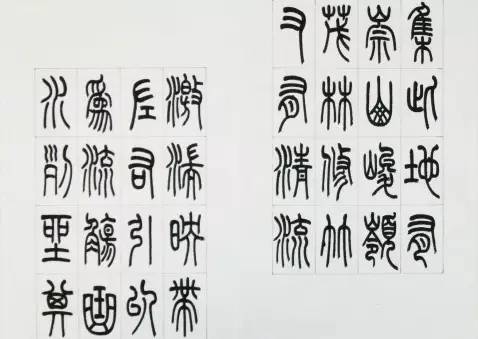 集此地有
崇山峻嶺
茂林修竹
又有清流
激湍映帶
左右引以
為流觴曲
水列坐其